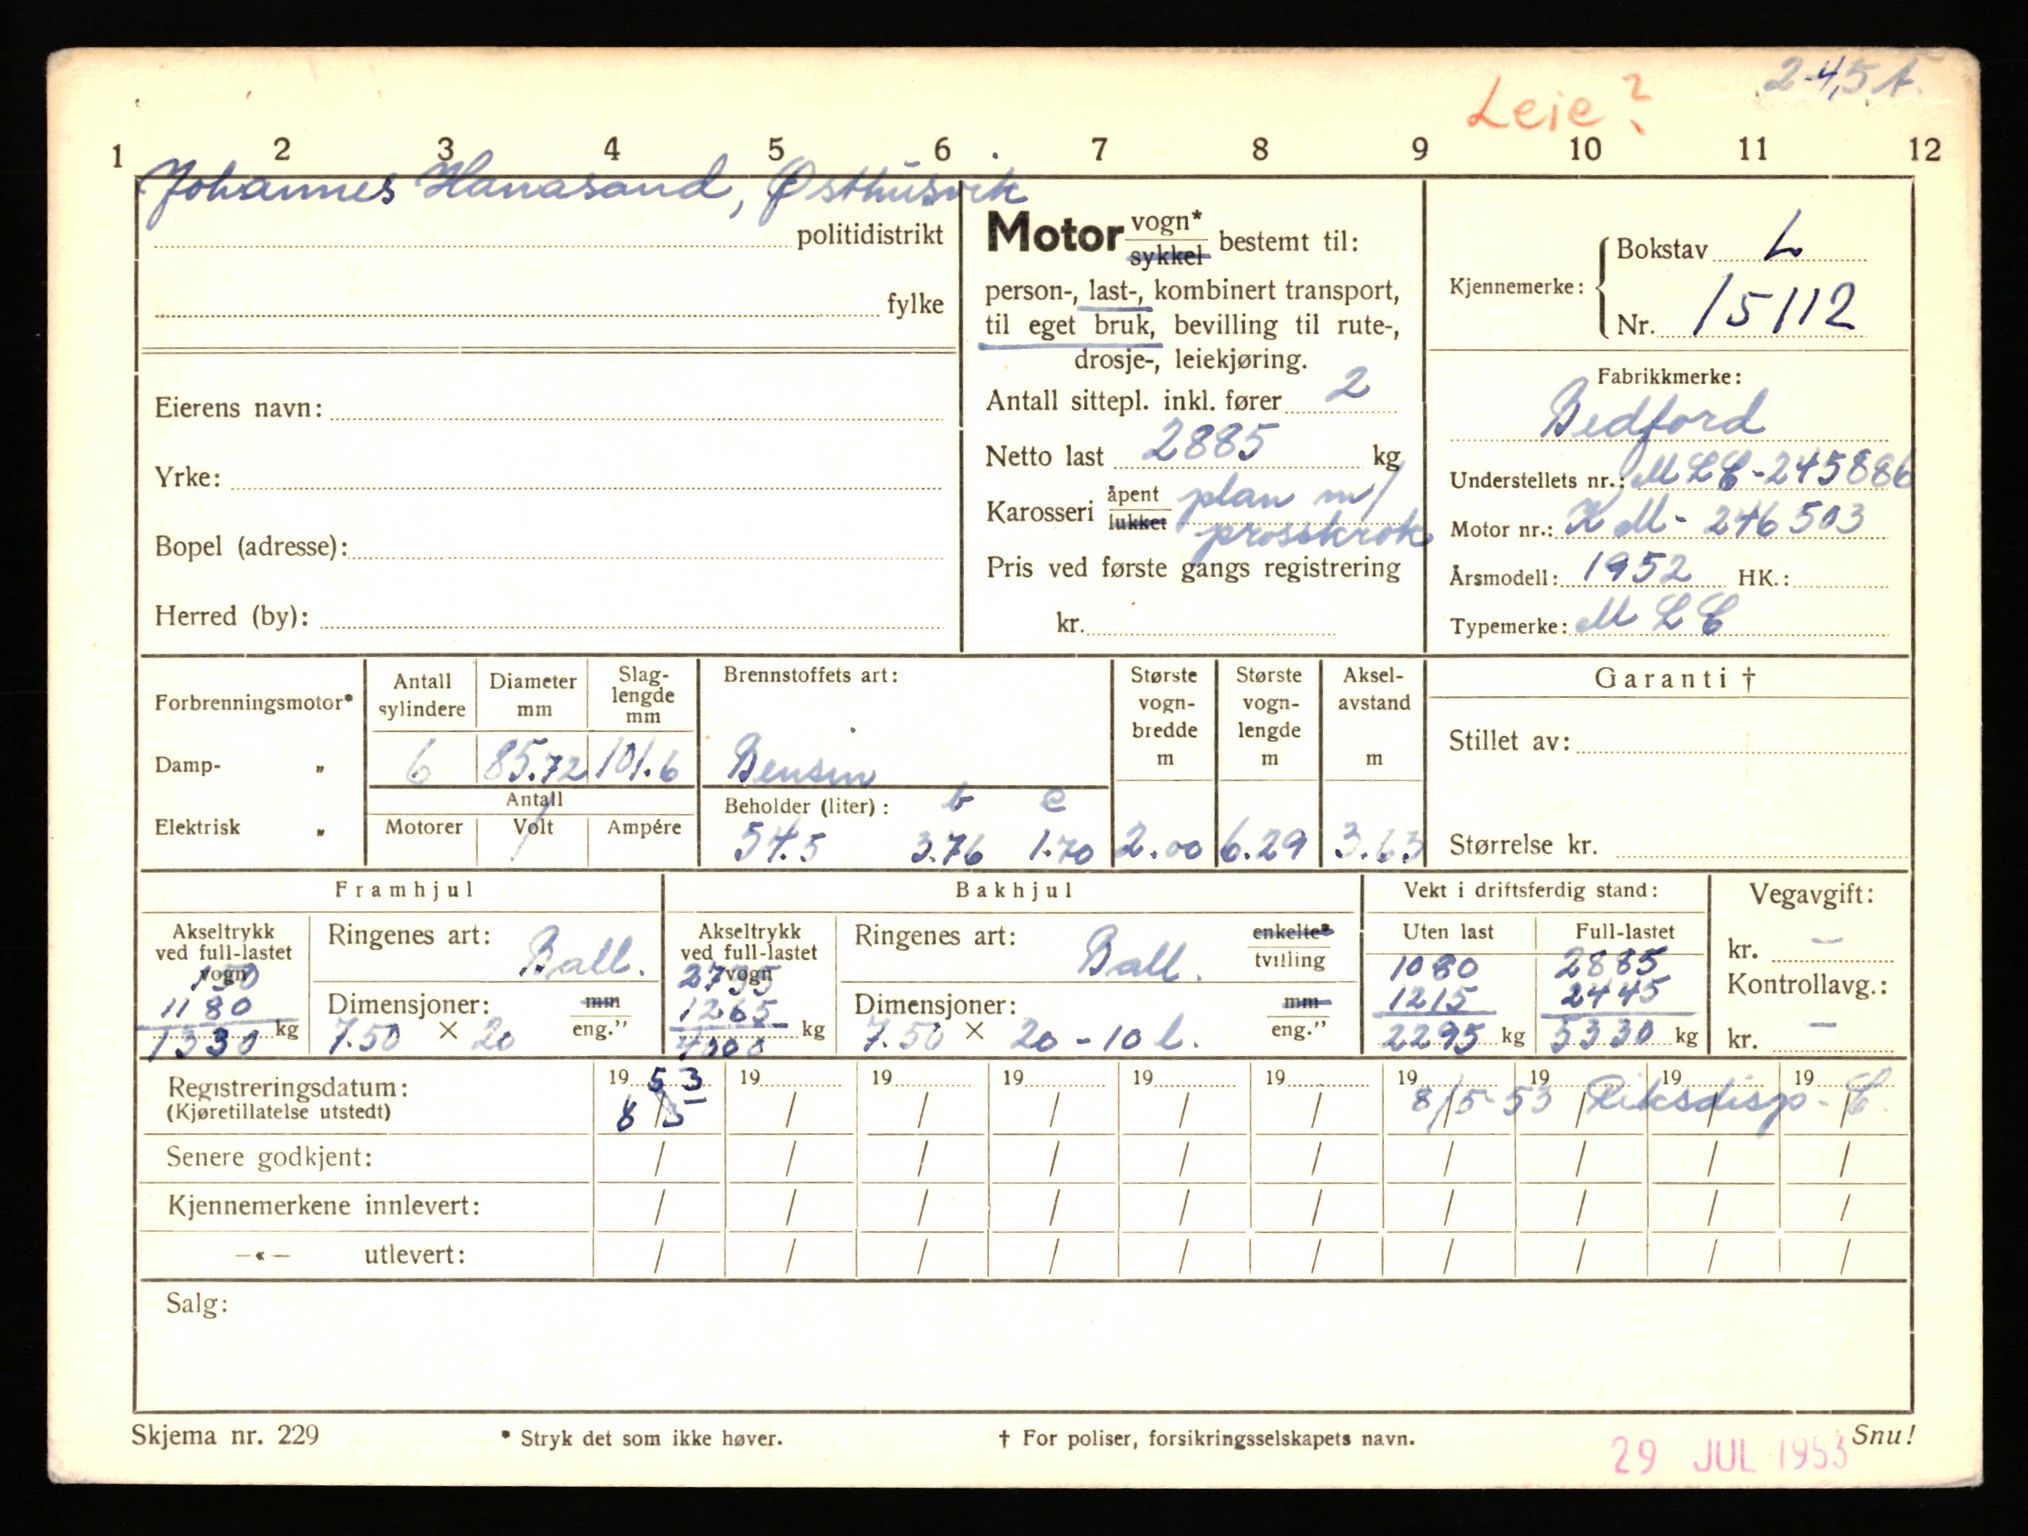 2-4,5 t.
Leie?
1 2 3 4 5 6 7 8 9 10 11 12
Johannes Hanasand, Østhusvik
politidistrikt
fylke
Eierens navn:
Yrke:
Bopel (adresse):
Herred (by):
Motor vogn* sykkel bestemt til:
person-, last-, kombinert transport,
til eget bruk, bevilling til rute-,
drosje-, leiekjøring.
Antall sittepl. inkl. fører 2
Netto last 2885 kg
Karosseri åpent lukket plan m/
prosskrok
Pris ved første gangs registrering
kr.
Kjennemerke: Bokstav L
Nr. 15112
Fabrikkmerke:
Bedford
Understellets nr.: MLC-245886
Motor nr.: KM-246503
Årsmodell: 1952 HK.:
Typemerke: MLC
Forbrenningsmotor*
Damp- „
Elektrisk „
Antall sylindere
Diameter mm
Slag-lengde mm
6 85.72 101.6
Antall
Motorer Volt Ampére
Brennstoffets art:
Bensin
Beholder (liter): b c
54.5 3.76 1.70
Største vogn-bredde m
2.00
Største vogn-lengde m
6.29
Aksel-avstand m
3.63
Garanti †
Stillet av:
Størrelse kr.
Framhjul
Akseltrykk ved full-lastet vogn
150
1180
1330 kg
Ringenes art: Ball.
Dimensjoner: mm
7.50 × 20 eng."
Bakhjul
Akseltrykk ved full-lastet vogn
2735
1265
4000 kg
Ringenes art: Ball. enkelte* tvilling
Dimensjoner: mm
7.50 × 20 - 10 l. eng."
Vekt i driftsferdig stand:
Uten last Full-lastet
1080 2885
1215 2445
2295 kg 5330 kg
Vegavgift:
kr. —
Kontrollavg.:
kr. —
Registreringsdatum: 19 53 19 19 19 19 19 19 19 19 19
(Kjøretillatelse utstedt) 8/5 / / / / / 8/5-53 Riksdisp - C.
Senere godkjent: / / / / / / / / / /
Kjennemerkene innlevert: / / / / / / / / / /
—«— utlevert: / / / / / / / / / /
Salg:
Skjema nr. 229 * Stryk det som ikke høver. † For poliser, forsikringsselskapets navn. Snu!
29 JUL 1953